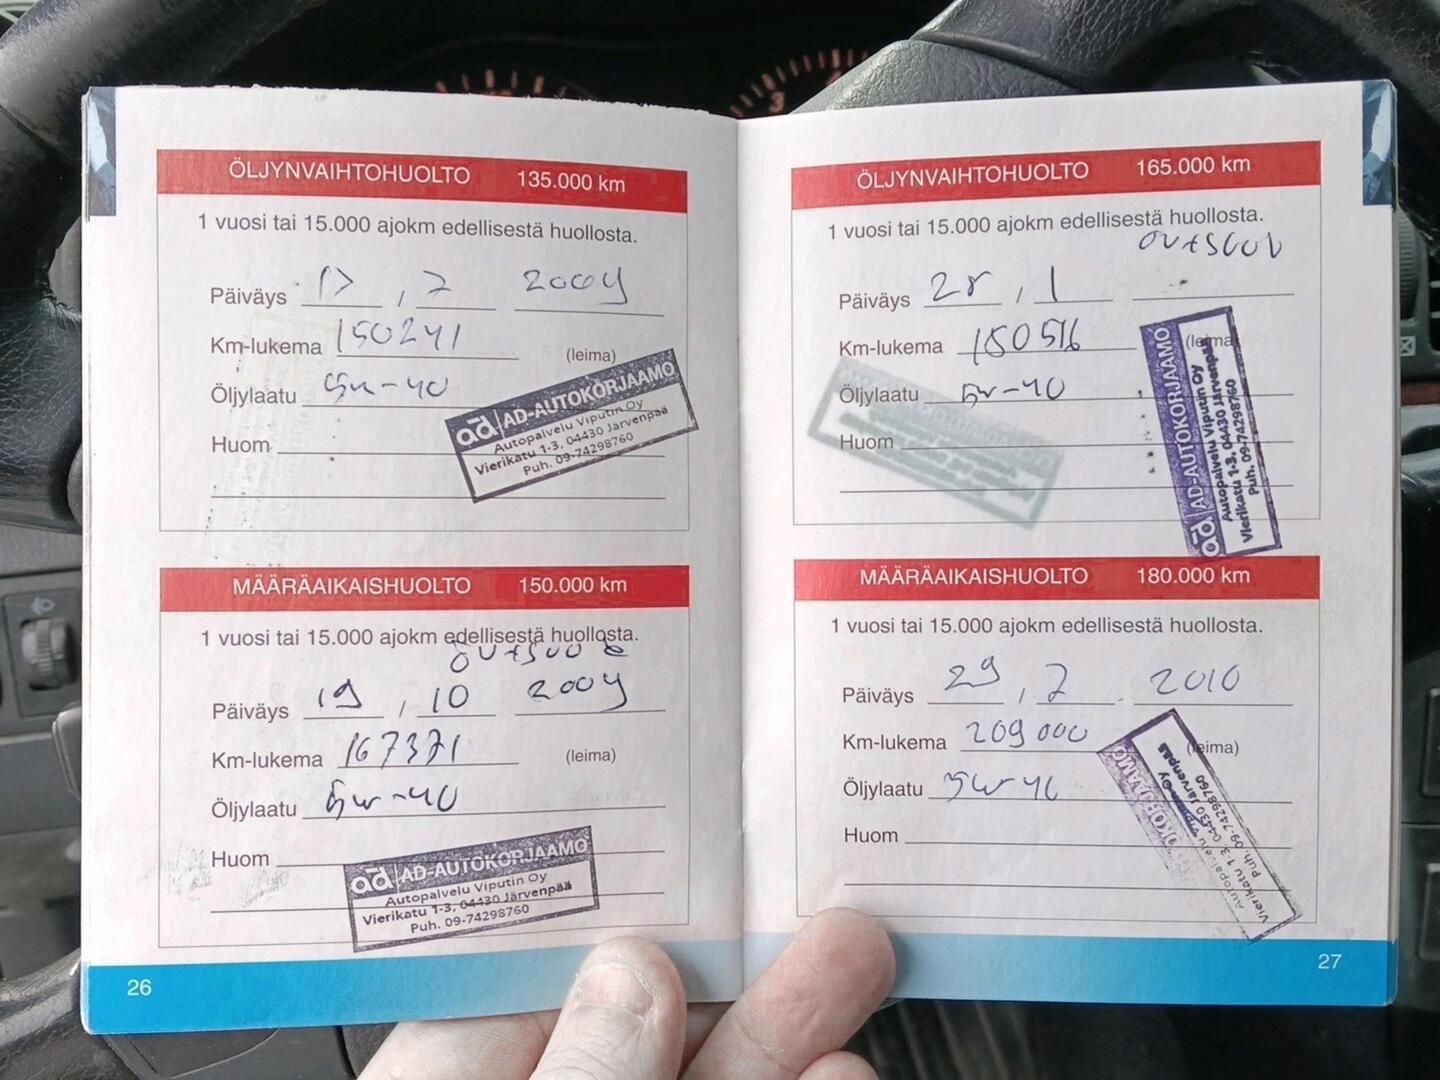 ÖLJYNVAIHTOHUOLTO 135.000 km
1 vuosi tai 15.000 ajokm edellisestä huollosta.
Päiväys 17 , 7 2009
Km-lukema 150241 (leima)
Öljylaatu 5w-40
Huom
ad AD-AUTOKORJAAMO
Autopalvelu Viputin Oy
Vierikatu 1-3, 04430 Järvenpää
Puh. 09-74298760
MÄÄRÄAIKAISHUOLTO 150.000 km
1 vuosi tai 15.000 ajokm edellisestä huollosta.
Päiväys 19 , 10 2009
Km-lukema 167371 (leima)
Öljylaatu 5w-40
Huom
ad AD-AUTOKORJAAMO
Autopalvelu Viputin Oy
Vierikatu 1-3, 04430 Järvenpää
Puh. 09-74298760
26
ÖLJYNVAIHTOHUOLTO 165.000 km
1 vuosi tai 15.000 ajokm edellisestä huollosta.
Päiväys 28 , 1
Km-lukema 180516 (leima)
Öljylaatu 5w-40
Huom
ad AD-AUTOKORJAAMO
Autopalvelu Viputin Oy
Vierikatu 1-3, 04430 Järvenpää
Puh. 09-74298760
MÄÄRÄAIKAISHUOLTO 180.000 km
1 vuosi tai 15.000 ajokm edellisestä huollosta.
Päiväys 29 , 7 . 2010
Km-lukema 209000 (leima)
Öljylaatu 5w-40
Huom
KORJAAMO
Autopalvelu Viputin Oy
Vierikatu 1-3, 04430 Järvenpää
Puh. 09-74298760
27